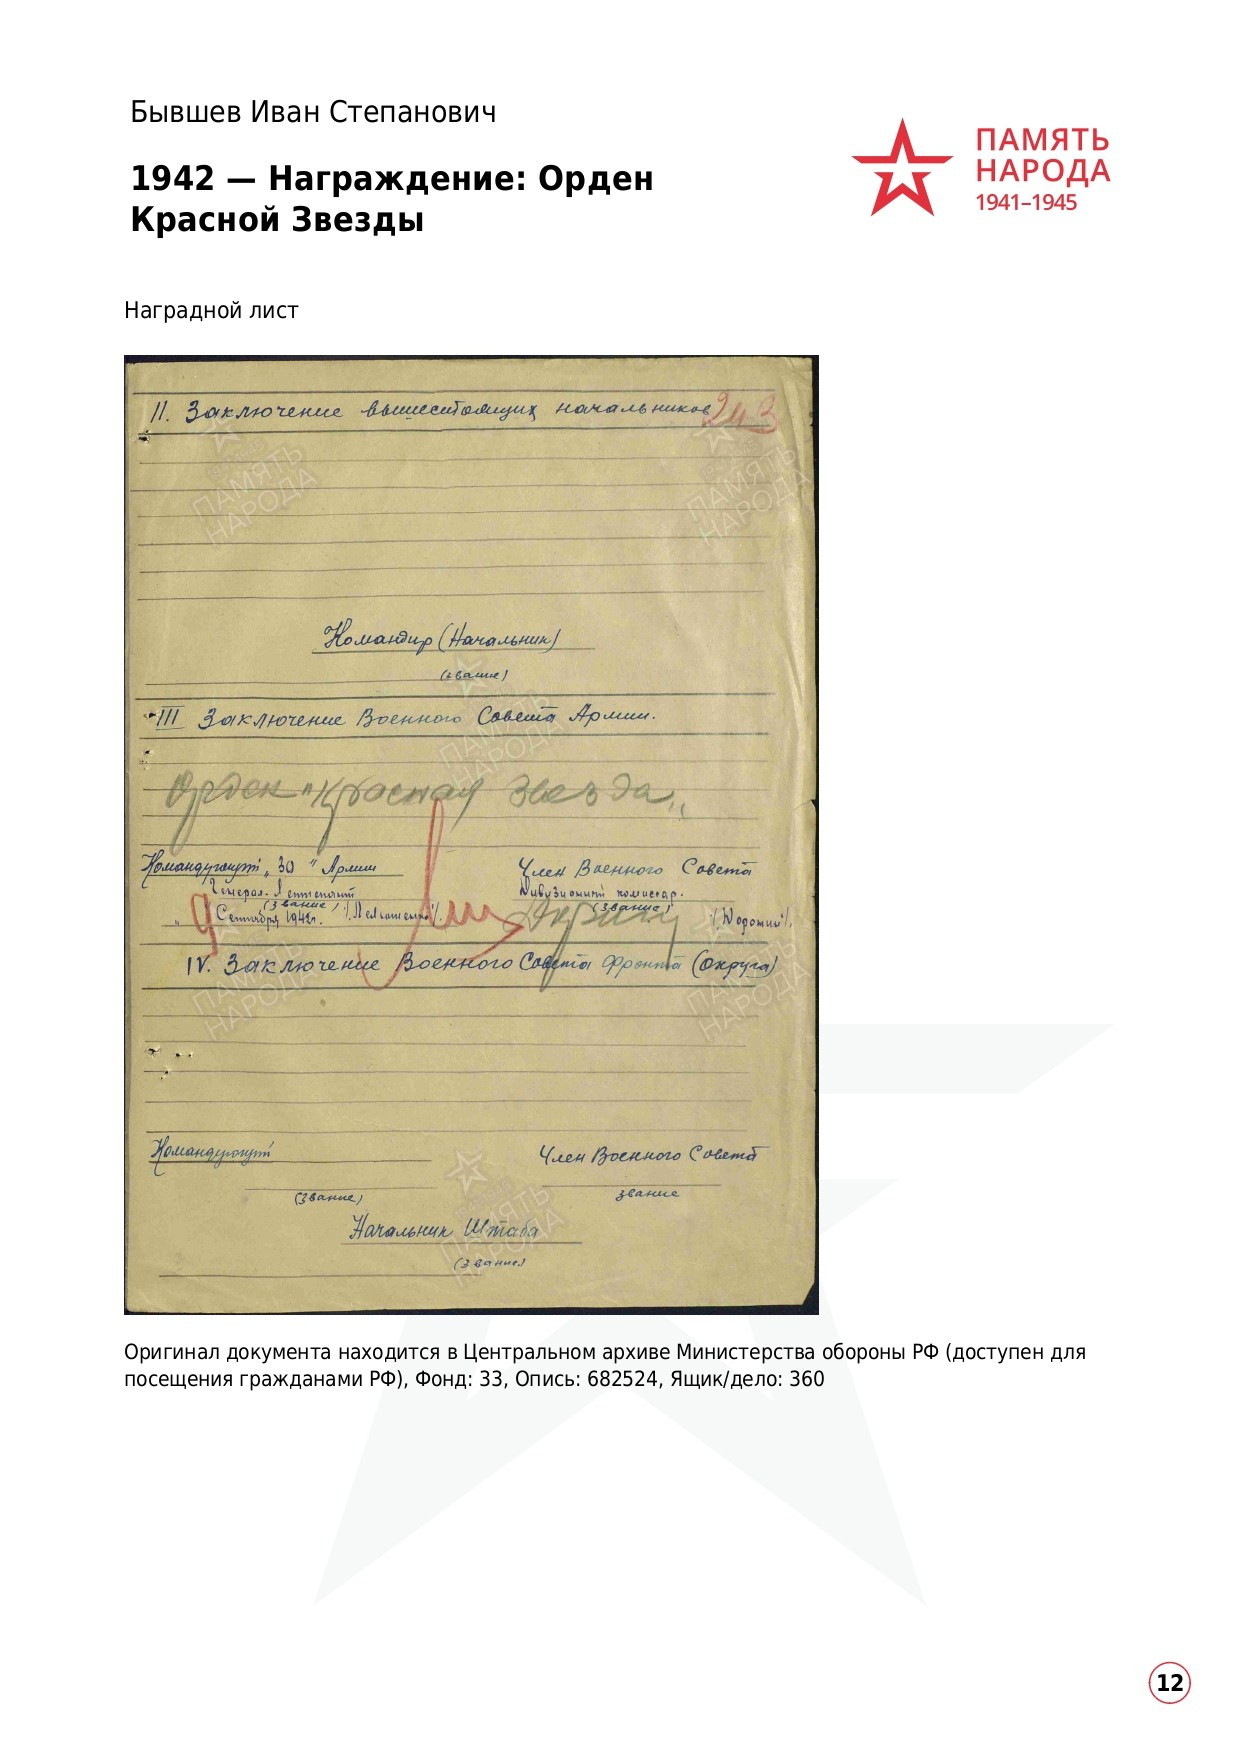 Бывшев Иван Степанович
1942 — Награждение: Орден
Красной Звезды
ПАМЯТЬ
НАРОДА
1941–1945
Наградной лист
II. Заключение вышестоящих начальников
243
Командир (Начальник)
(звание)
III Заключение Военного Совета Армии.
Орден "Красная Звезда"
Командующий „ 30 " Армии
Член Военного Совета
Генерал-Лейтенант
Дивизионный комиссар.
(звание)
(звание)
„ 9 Сентября 1942г.
IV. Заключение Военного Совета Фронта (Округа)
Командующий
Член Военного Совета
(Звание)
звание
Начальник Штаба
(звание)
Оригинал документа находится в Центральном архиве Министерства обороны РФ (доступен для
посещения гражданами РФ), Фонд: 33, Опись: 682524, Ящик/дело: 360
12